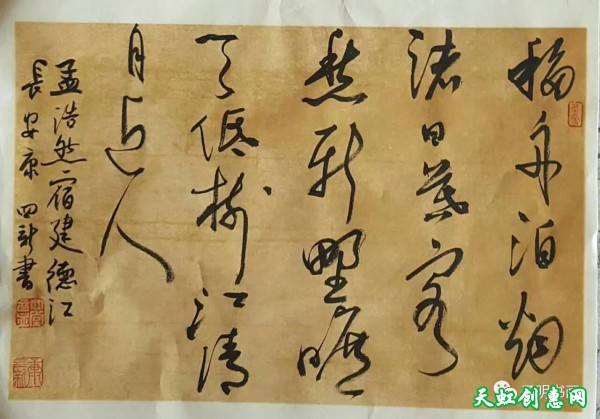 移舟泊烟
渚日暮客
愁新野曠
天低樹江清
月近人
孟浩然宿建德江
長安康四新書
天虹创惠网